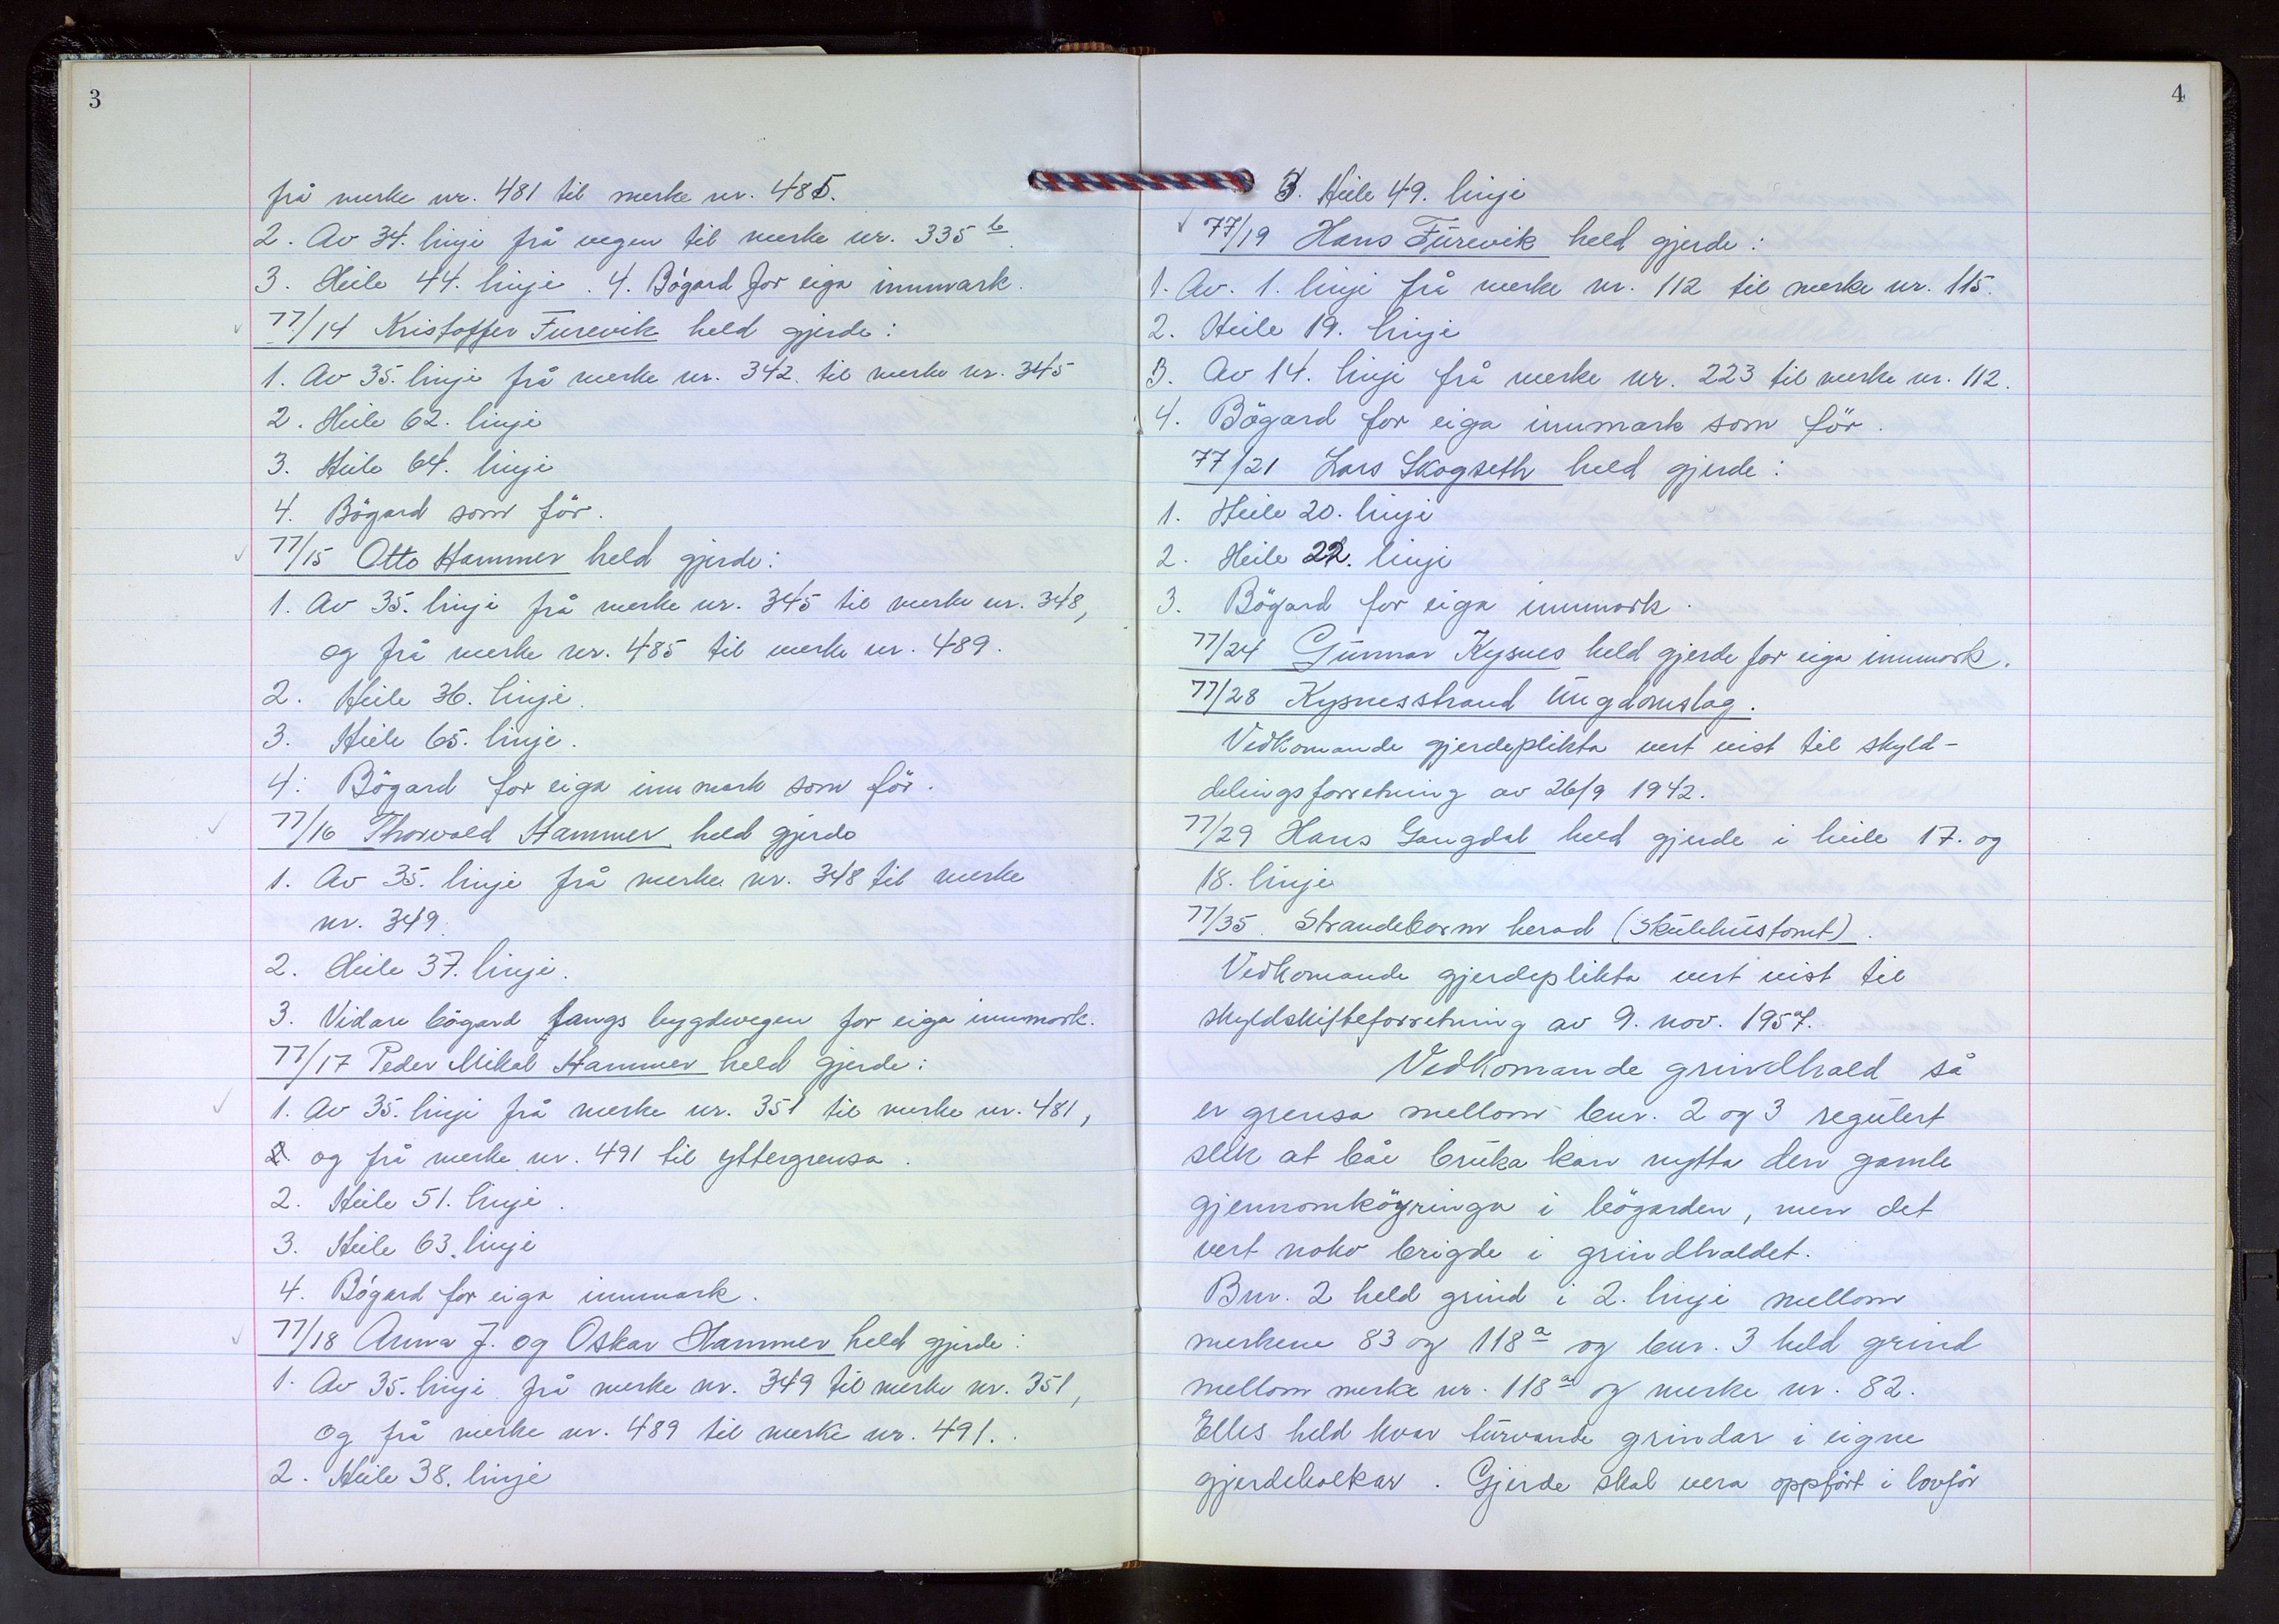 3
frå merke nr. 481 til merke nr. 485.
2. Av 34. linje frå vegen til merke nr. 335 b.
3. Heile 44. linje. 4. Bögard for eiga innmark.
77/14 Kristoffer Furevik held gjerde:
1. Av 35. linje frå merke nr. 342 til merke nr. 345
2. Heile 62. linje
3. Heile 64. linje
4. Bögard som för.
77/15 Otto Hammer held gjerde:
1. Av 35. linje frå merke nr. 345 til merke nr. 348,
og frå merke nr. 485 til merke nr. 489.
2. Heile 36. linje.
3. Heile 65. linje.
4. Bögard for eiga innmark som för.
77/16 Thorvald Hammer held gjerde
1. Av 35. linje frå merke nr. 348 til merke
nr. 349.
2. Heile 37. linje.
3. Vidare bögard langs bygdevegen for eiga innmark.
77/17 Peder Mikal Hammer held gjerde:
1. Av 35. linje frå merke nr. 351 til merke nr. 481,
og frå merke nr. 491 til yttergrensa.
2. Heile 51. linje.
3. Heile 63. linje
4. Bögard for eiga innmark.
77/18 Anna J. og Oskar Hammer held gjerde:
1. Av 35. linje frå merke nr. 349 til merke nr. 351,
og frå merke nr. 489 til merke nr. 491.
2. Heile 38. linje
4
3. Heile 49. linje
77/19 Hans Furevik held gjerde:
1. Av. 1. linje frå merke nr. 112 til merke nr. 115.
2. Heile 19. linje
3. Av 14. linje frå merke nr. 223 til merke nr. 112.
4. Bögard for eiga innmark som för.
77/21 Lars Skogseth held gjerde:
1. Heile 20. linje
2. Heile 22. linje
3. Bögard for eiga innmark.
77/24 Gunnar Kysnes held gjerde for eiga innmark.
77/28 Kysnesstrand Ungdomslag.
Vedkomande gjerdeplikta vert vist til skyld-
delingsforretning av 26/9 1942.
77/29 Hans Gangdal held gjerde i heile 17. og
18. linje
77/35. Strandebarm herad (Skulehustomt).
Vedkomande gjerdeplikta vert vist til
skyldskifteforretning av 9. nov. 1957.
Vedkomande grindhald så
er grensa mellom bnr. 2 og 3 regulert
slik at båe bruka kan nytta den gamle
gjennomköyringa i bögarden, men det
vert noko brigde i grindhaldet.
Bnr. 2 held grind i 2. linje mellom
merkene 83 og 118 a og bnr. 3 held grind
mellom merke nr. 118 a og merke nr. 82.
Elles held kvar turvande grindar i eigne
gjerdebolkar. Gjerde skal vera oppfört i lovför